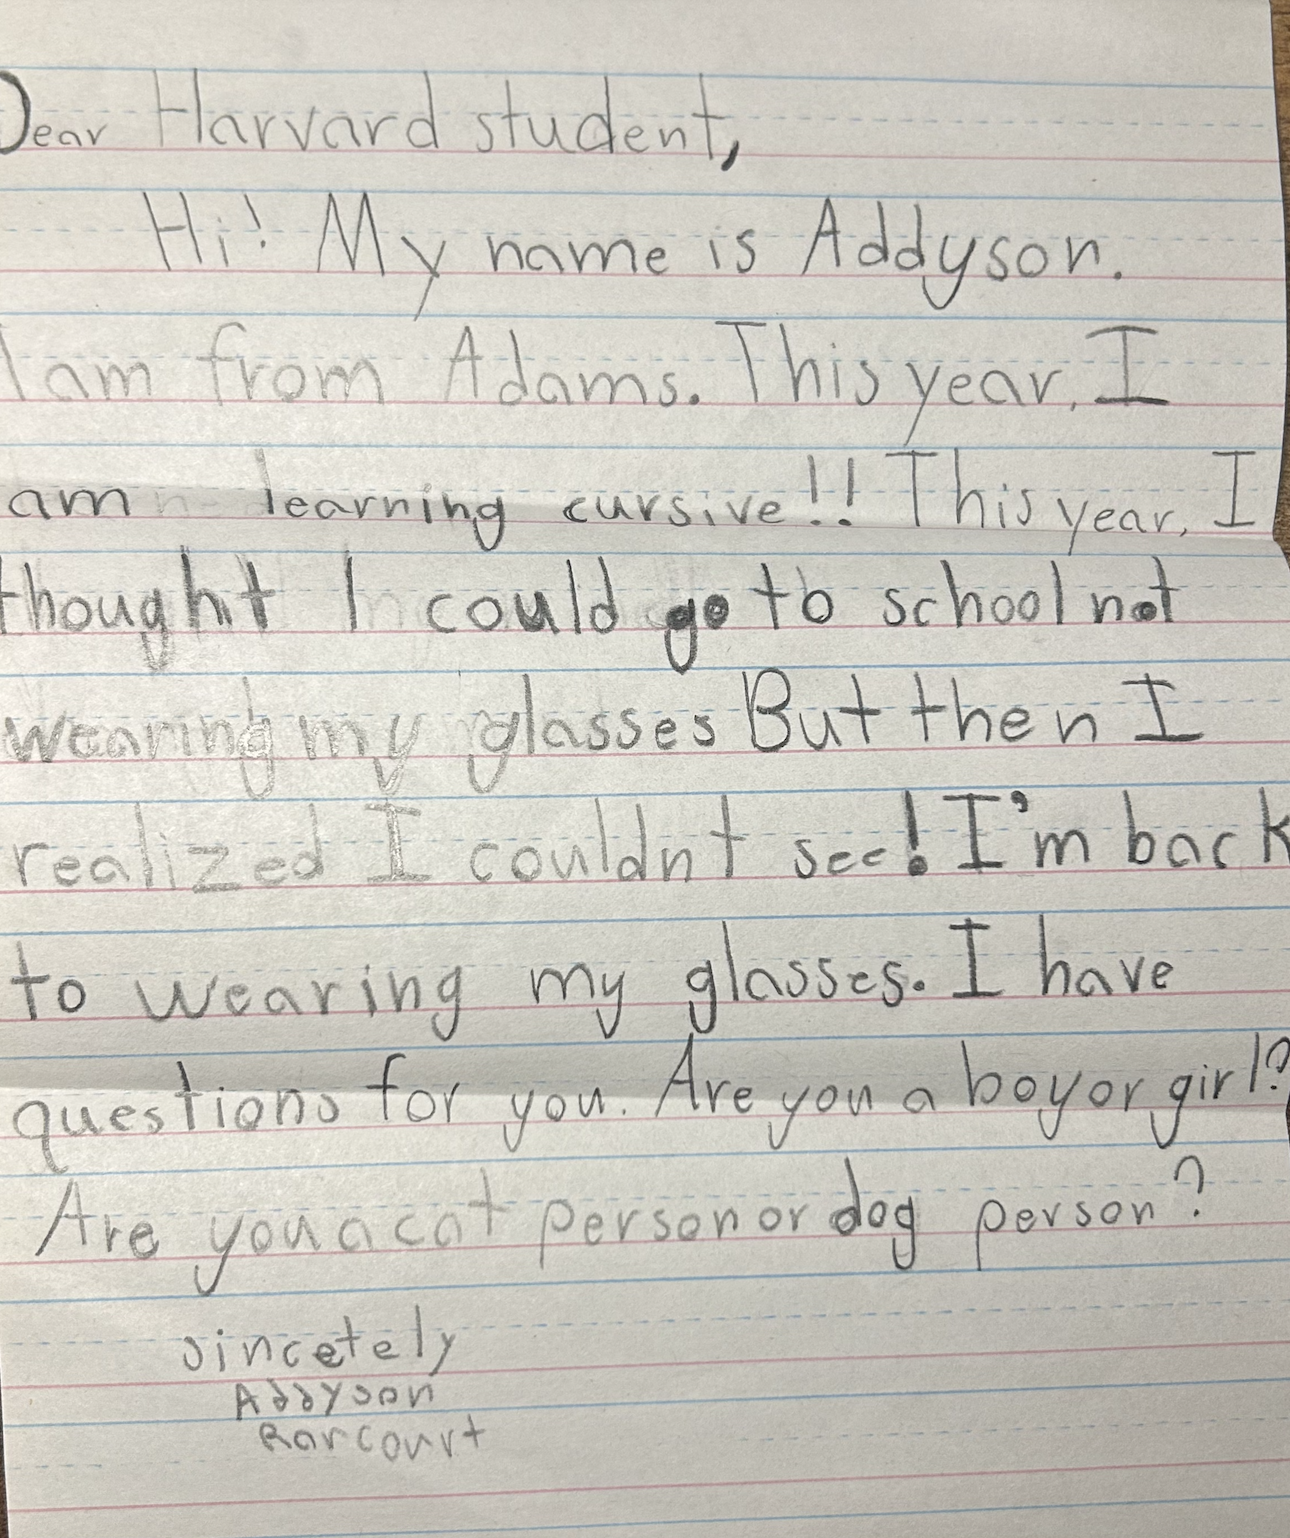 Dear Harvard student,
Hi! My name is Addyson.
I am from Adams. This year, I
am learning cursive!! This year, I
thought I could go to school not
wearing my glasses But then I
realized I couldnt see! I'm back
to wearing my glasses. I have
questions for you. Are you a boy or girl?
Are you a cat person or dog person?
sincetely
Addyson
Rarcourt